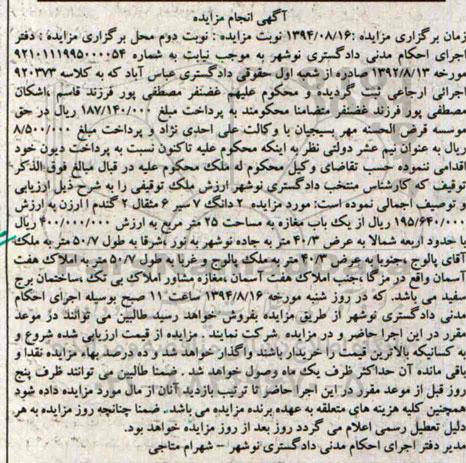 آگهی انجام مزایده
زمان برگزاری مزایده :۱۳۹۴/۰۸/۱۶ نوبت مزایده : نوبت دوم محل برگزاری مزایده : دفتر
اجرای احکام مدنی دادگستری نوشهر به موجب نیابت به شماره ۹۲۱۰۱۱۱۹۹۵۰۰۰۰۵۴
مورخه ۱۳۹۲/۸/۱۳ صادره از شعبه اول حقوقی دادگستری عباس آباد که به کلاسه ۹۲۰۳۷۳
اجرائی ارجاعی ثبت گردیده ، محکوم علیهم غضنفر مصطفی پور فرزند قاسم ،اشکان
مصطفی پور فرزند غضنفر متضامنا محکومند به پرداخت مبلغ ۱۸۷/۱۴۰/۰۰۰ ریال در حق
موسسه قرض الحسنه مهر بسیجیان با وکالت علی احدی نژاد و پرداخت مبلغ ۸/۵۰۰/۰۰۰
ریال به عنوان نیم عشر دولتی نظر به اینکه محکوم علیه تاکنون نسبت به پرداخت دیون خود
اقدامی ننموده حسب تقاضای وکیل محکوم له ملک محکوم علیه در قبال مبالغ فوق الذکر
توقیف که کارشناس منتخب دادگستری نوشهر ارزش ملک توقیفی را به شرح ذیل ارزیابی
و توصیف اجمالی نموده است: مورد مزایده ۲ دانگ ۷ سیر ۶ مثقال ۲ گندم ا ارزن به ارزش
۱۹۵/۶۴۰/۰۰۰ ریال از یک باب مغازه به مساحت ۲۵ متر مربع به ارزش ۴۰۰/۰۰۰/۰۰۰ ریال
با حدود اربعه شمالا به عرض ۴۰/۳ متر به جاده نوشهر به نور ،شرقا به طول ۵۰/۷ متر به ملک
آقای پالوج ،جنوبا به عرض ۴۰/۳ متر به ملک پالوج و غربا به طول ۵۰/۷ متر به املاک هفت
آسمان واقع در مزگا ،جنب املاک هفت آسمان ،مغازه مشاور املاک بی تک ،ساختمان برج
سفید می باشد. که در روز شنبه مورخه ۱۳۹۴/۸/۱۶ ساعت ۱۱ صبح بوسیله اجرای احکام
مدنی دادگستری نوشهر از طریق مزایده بفروش خواهد رسید. طالبین می توانند در موعد
مقرر در این اجرا حاضر و در مزایده شرکت نمایند . مزایده از قیمت ارزیابی شده شروع و
به کسانیکه بالاترین قیمت را خریدار باشند واگذار خواهد شد و ده درصد بهاء مزایده نقدا و
باقی مانده آن حداکثر ظرف یک ماه وصول خواهد شد . ضمنا طالبین می توانند ظرف پنج
روز قبل از موعد مقرر در این اجرا حاضر تا ترتیب بازدید آنان از مال مورد مزایده داده شود
همچنین کلیه هزینه های متعلقه به عهده برنده مزایده می باشد . ضمنا چنانچه روز مزایده به هر
دلیل تعطیل رسمی اعلام می گردد روز بعد از روز مزایده خواهد بود.
مدیر دفتر اجرای احکام مدنی دادگستری نوشهر – شهرام متاجی